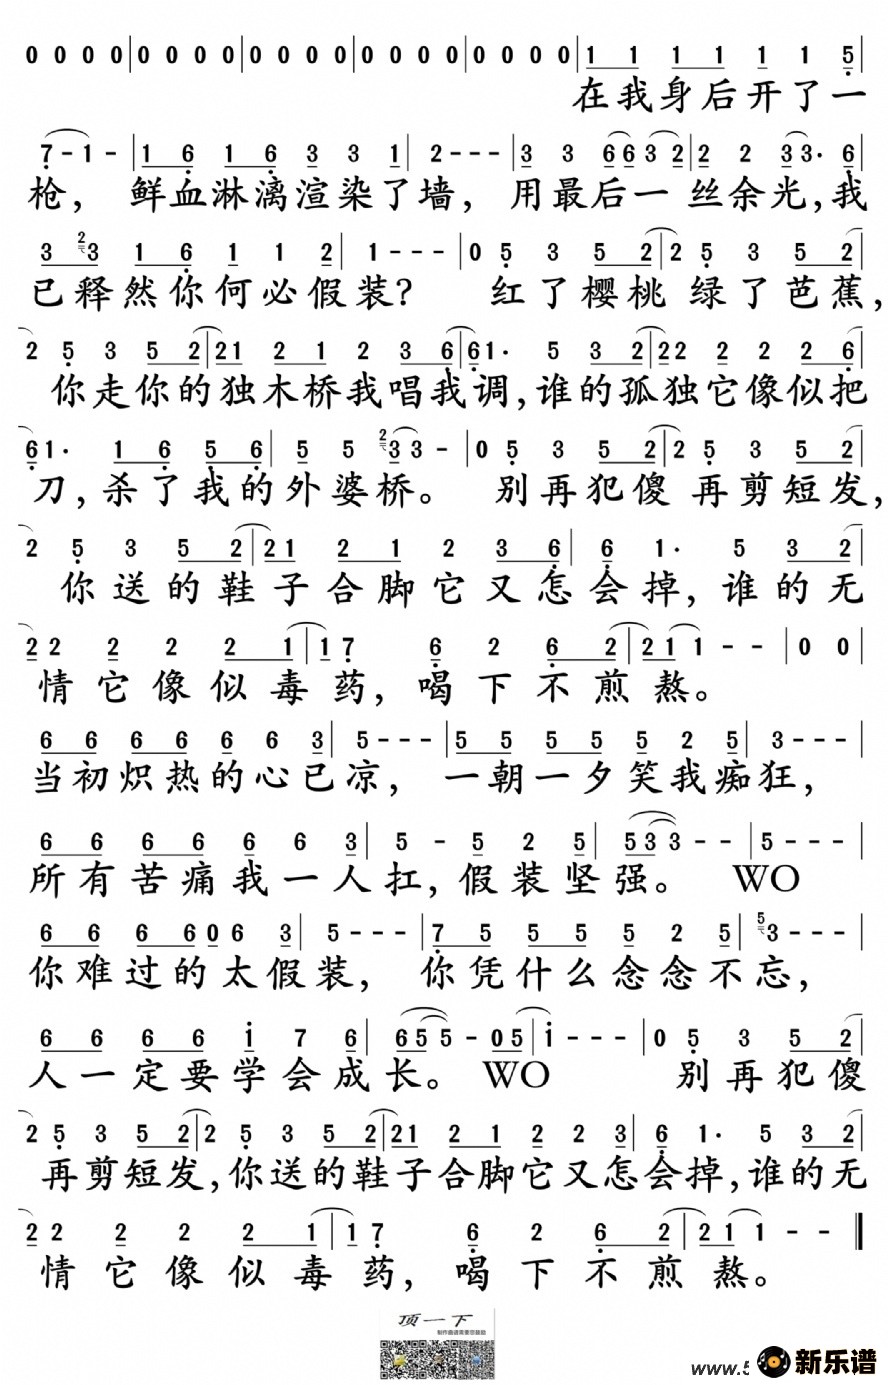 0 0 0 0|0 0 0 0|0 0 0 0|0 0 0 0|0 0 0 0|1 1 1 1 1 1 5|
在我身后开了一
7-1-|1 6 1 6 3 3 1|2---|3 3 6 6 3 2|2 2 3 3· 6|
枪，鲜血淋漓渲染了墙，用最后一丝余光，我
3 2 3 1 6 1 1 2|1---|0 5 3 5 2|2 5 3 5 2|
已释然你何必假装？红了樱桃 绿了芭蕉，
2 5 3 5 2|2 1 2 1 2 3 6|6 1· 5 3 2|2 2 2 2 2 6|
你走你的独木桥我唱我调，谁的孤独它像似把
6 1· 1 6 5 6|5 5 2 3 3-|0 5 3 5 2|2 5 3 5 2|
刀，杀了我的外婆桥。别再犯傻 再剪短发，
2 5 3 5 2|2 1 2 1 2 3 6|6 1· 5 3 2|
你送的鞋子合脚它又怎会掉，谁的无
2 2 2 2 2 1|1 7 6 2 6 2|2 1 1 - -|0 0|
情它像似毒药，喝下不煎熬。
6 6 6 6 6 6 3|5---|5 5 5 5 5 2 5|3---|
当初炽热的心已凉，一朝一夕笑我痴狂，
6 6 6 6 6 6 3|5 - 5 2 5|5 3 3 - -|5---|
所有苦痛我一人扛，假装坚强。WO
6 6 6 6 0 6 3|5---|7 5 5 5 5 2 5|5 3---|
你难过的太假装，你凭什么念念不忘，
6 6 6 6 i 7 6|6 5 5 - 0 5|i---|0 5 3 5 2|
人一定要学会成长。WO 别再犯傻
2 5 3 5 2|2 5 3 5 2|2 1 2 1 2 2 3|6 1· 5 3 2|
再剪短发，你送的鞋子合脚它又怎会掉，谁的无
2 2 2 2 2 1|1 7 6 2 6 2|2 1 1 - -‖
情它像似毒药，喝下不煎熬。
顶一下
www.5
新乐谱